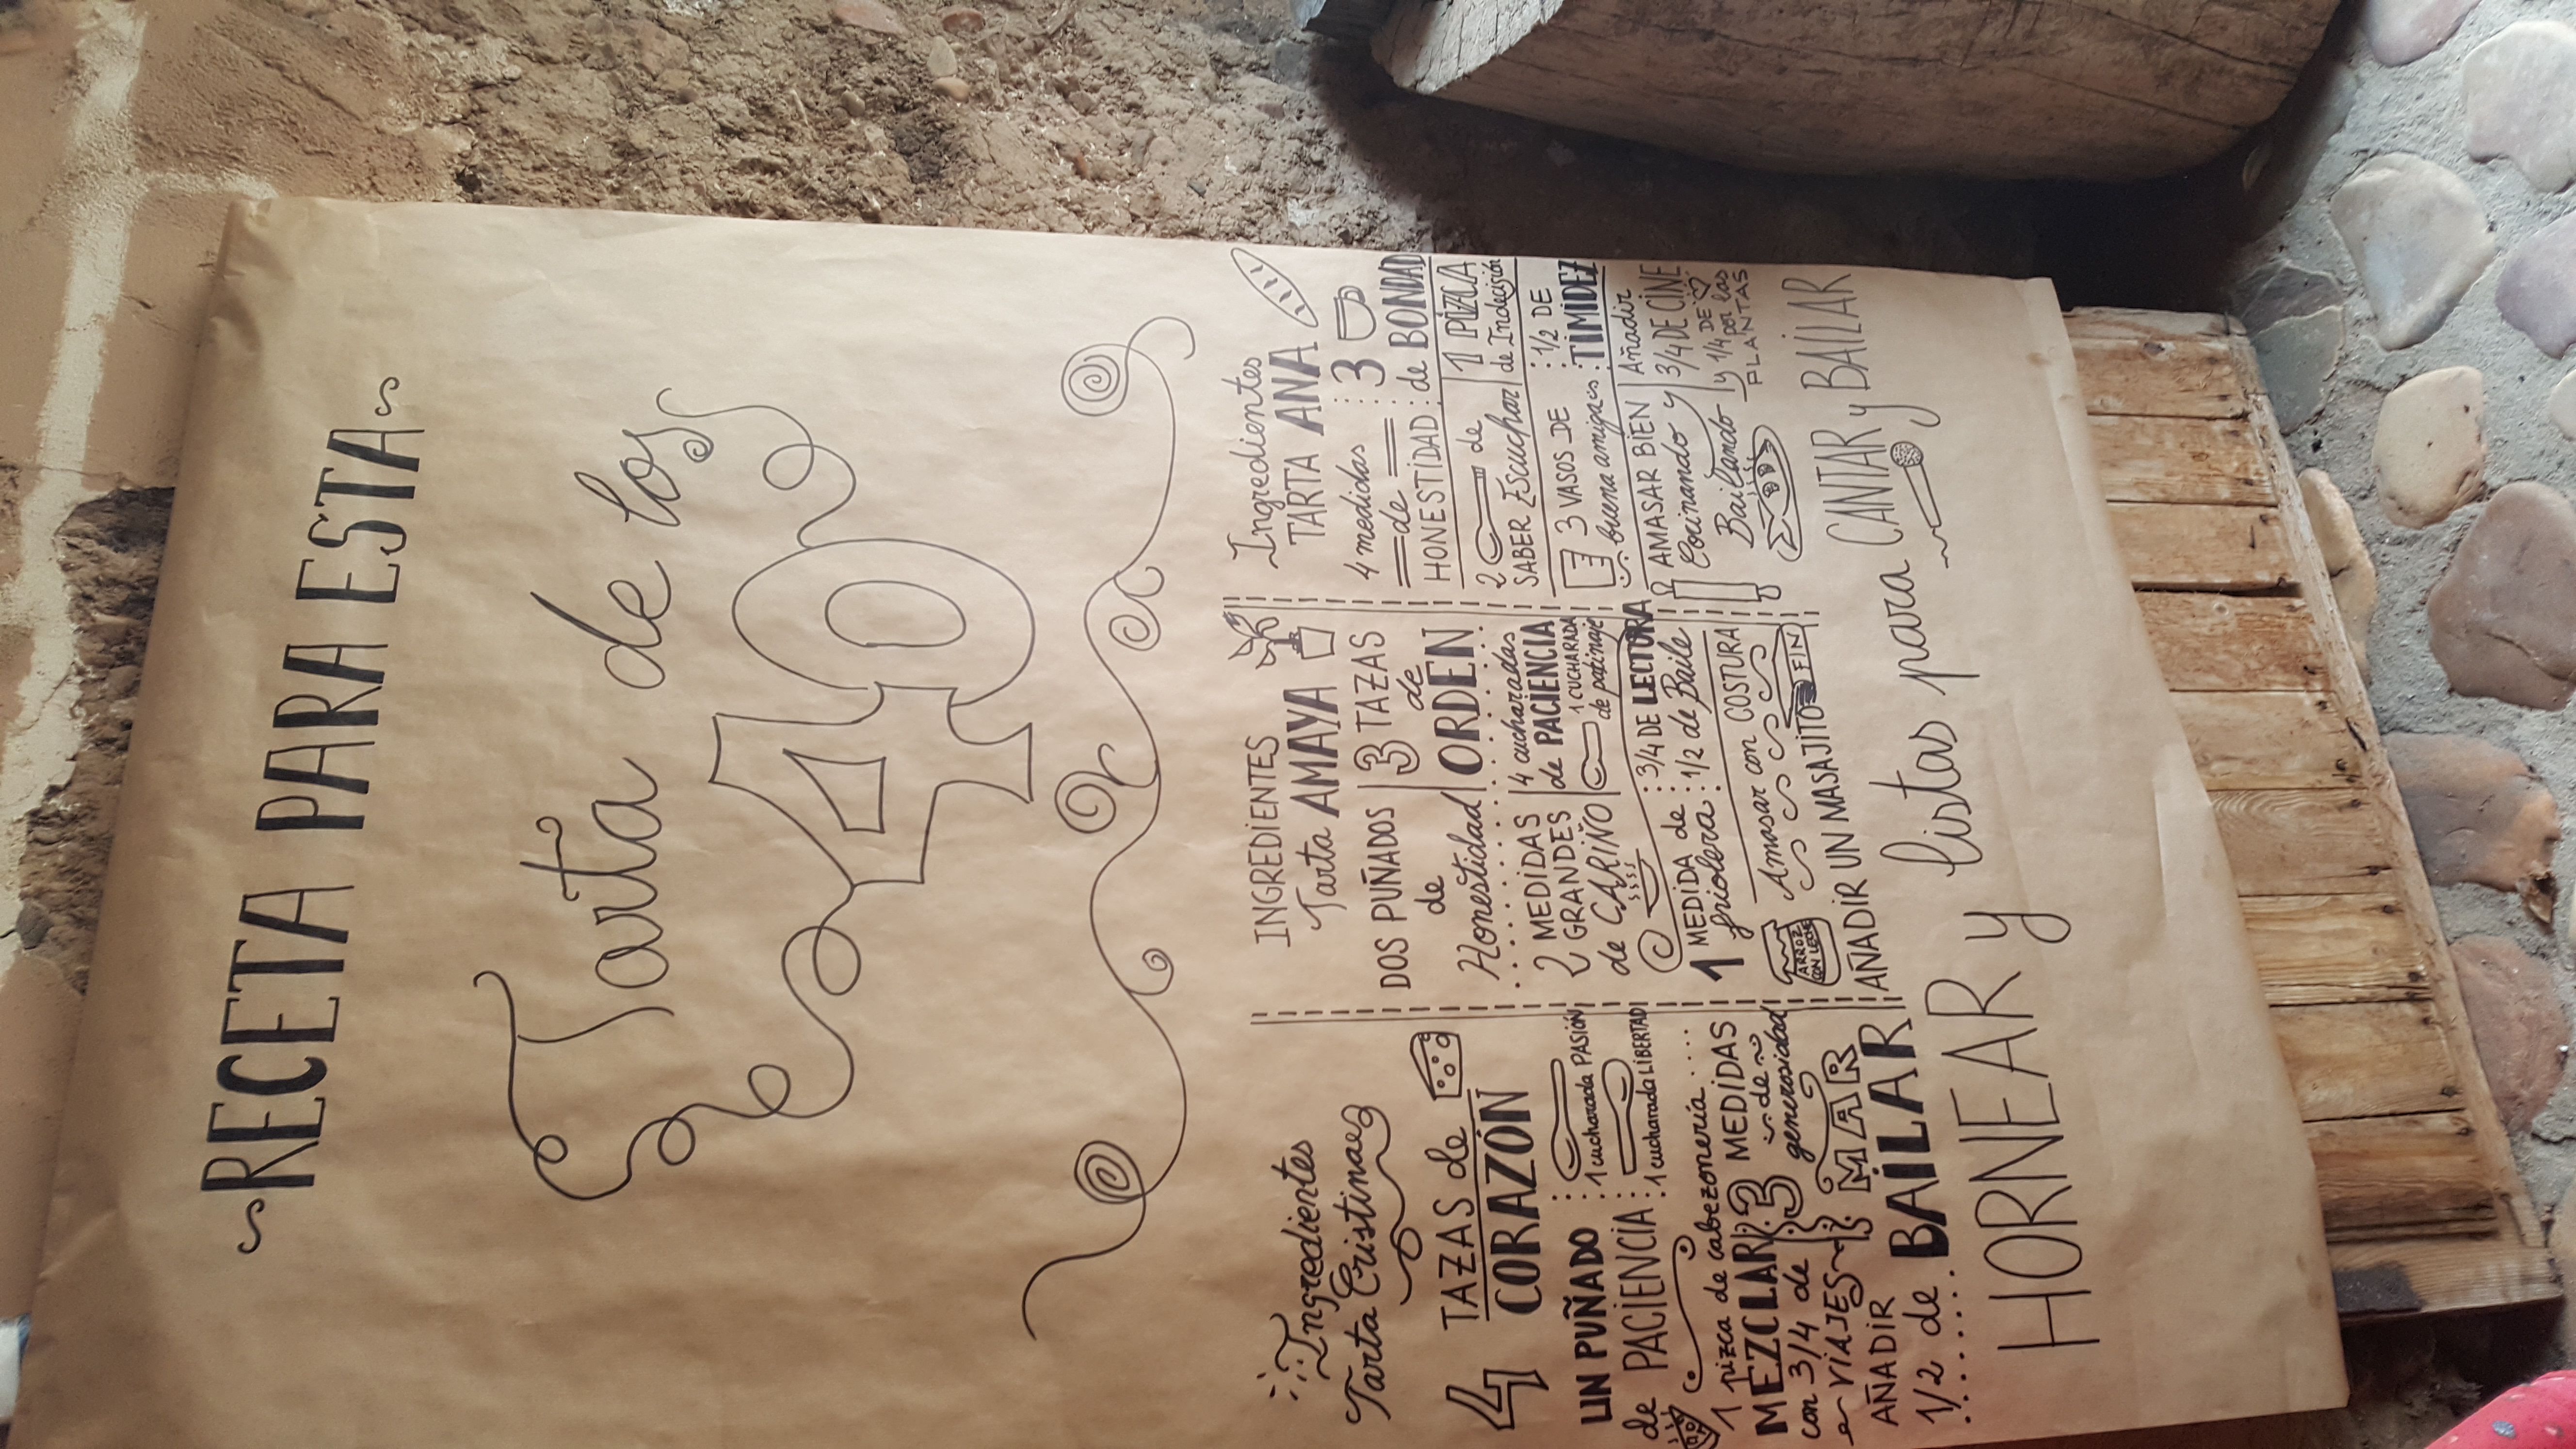 RECETA PARA ESTA
Tarta de los
40
Ingredientes
Tarta Cristina
4 TAZAS de
CORAZÓN
UN PUÑADO
de PACIENCIA
1 cucharada PASIÓN
1 cucharada LIBERTAD
1 pizca de cabezonería
MEZCLAR
con 3/4 de
VIAJES
3 MEDIDAS
de
generosidad
MAR
AÑADIR
1/2 de BAILAR
INGREDIENTES
Tarta AMAYA
DOS PUÑADOS
de
Honestidad
3 TAZAS
de
ORDEN
2 MEDIDAS
GRANDES
de CARIÑO
4 cucharadas
de PACIENCIA
1 CUCHARADA
de patinaje
1 MEDIDA de
friolera
3/4 DE LECTURA
1/2 de Baile
Amasar con COSTURA
ARROZ
CON LECHE
AÑADIR UN MASAJITO
FIN
Ingredientes
TARTA ANA
4 medidas
de
HONESTIDAD
3
de BONDAD
2 de
SABER Escuchar
1 PIZCA
de Indecisión
3 VASOS DE
buena amiga
1/2 DE
TIMIDEZ
AMASAR BIEN
Cocinando y
Bailando
Añadir
3/4 DE CINE
y 1/4 DE
por las
PLANTAS
HORNEAR y listas para CANTAR y BAILAR